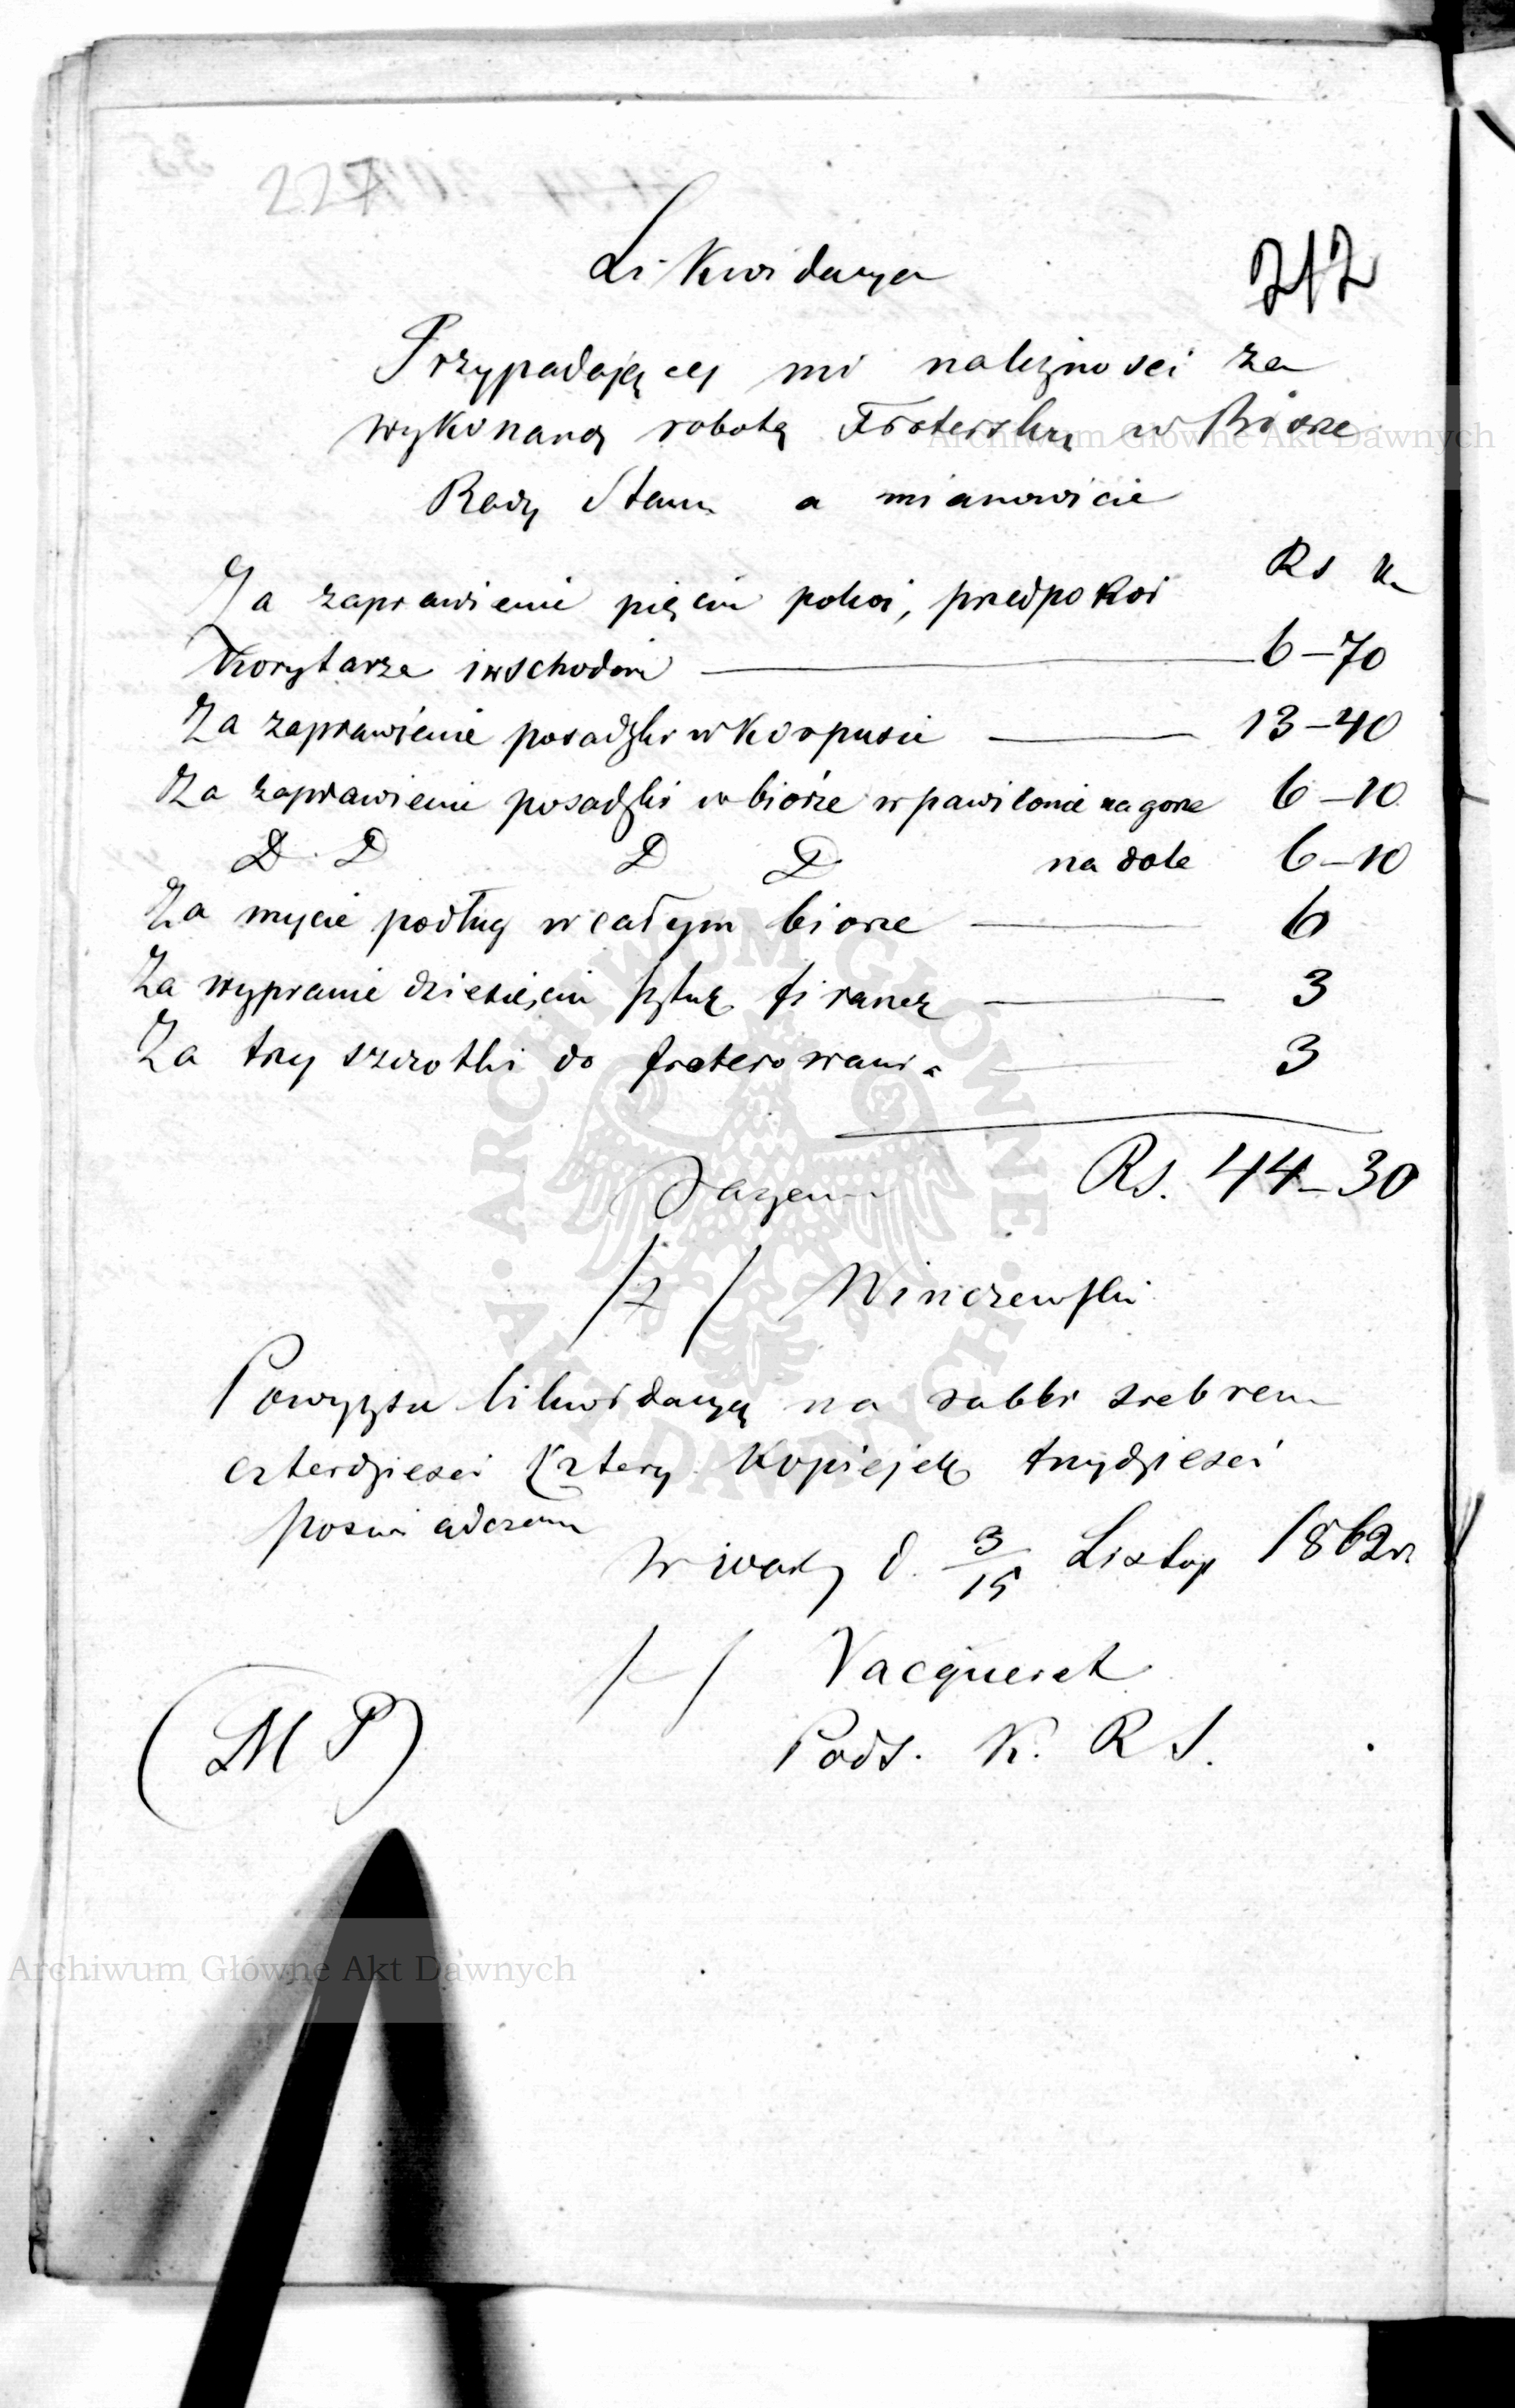 227
212
Likwidacya
Przypadającej mi należności za
wykonaną robotę Froterską w Biórze
Rady Stanu a mianowicie
Rs k
Za zaprawienie pięciu pokoi, przedpokoi
Korytarza i wschodów 6-70
Za zaprawienie posadzki w Korpusie 13-40
Za zaprawienie posadzki w biórze w pawilonie na gorze 6-10
D. D D D na dole 6-10
Za mycie podług w całym biorze 6
Za wypranie dziesięciu sztuk firanek 3
Za trzy szczotki do froterowania 3
Razem Rs. 44-30
Winczewski
Powyższą likwidacyą na rubli srebrem
czterdzieści cztery Kopiejek trzydzieści
poswiadczam
w Warsz d. 3/15 Listop 1862 r.
/-/ Vacqueret
Pods. K. R S.
(M P)
Archiwum Główne Akt Dawnych
ARCHIWUM GŁÓWNE AKT DAWNYCH
Archiwum Główne Akt Dawnych